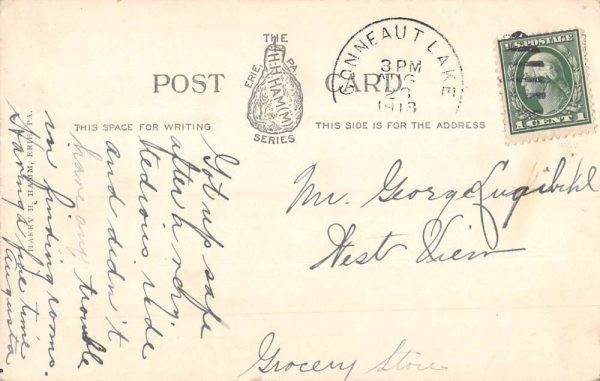 THE
ERIE, PA
H·H·HAMM
SERIES
POST CARD
CONNEAUT LAKE
3 PM
AUG
26
1913
U.S. POSTAGE
1 CENT 1
THIS SPACE FOR WRITING
THIS SIDE IS FOR THE ADDRESS
HARRY H. HAMM, ERIE, PA.
Got up safe
after a very
tedious ride
and didn't
have any trouble
in finding rooms.
Having a fine time
Augusta
Mr. George Lugibihl
West View
Grocery Store